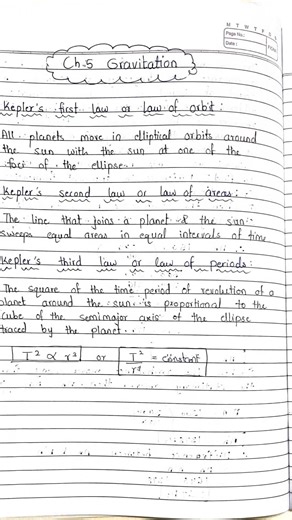 M T W T F S S
Page No.:
Date:
Ch-5 Gravitation
Kepler's first law or law of orbit:
All planets move in elliptical orbits around
the sun with the sun at one of the
foci of the ellipse.
Kepler's second law or law of areas:
The line that joins a planet & the sun
sweeps equal areas in equal intervals of time
Kepler's third law or law of periods:
The square of the time period of revolution of a
planet around the sun is proportional to the
cube of the semimajor axis of the ellipse
traced by the planet.
T² ∝ r³ or T²/r³ = constant